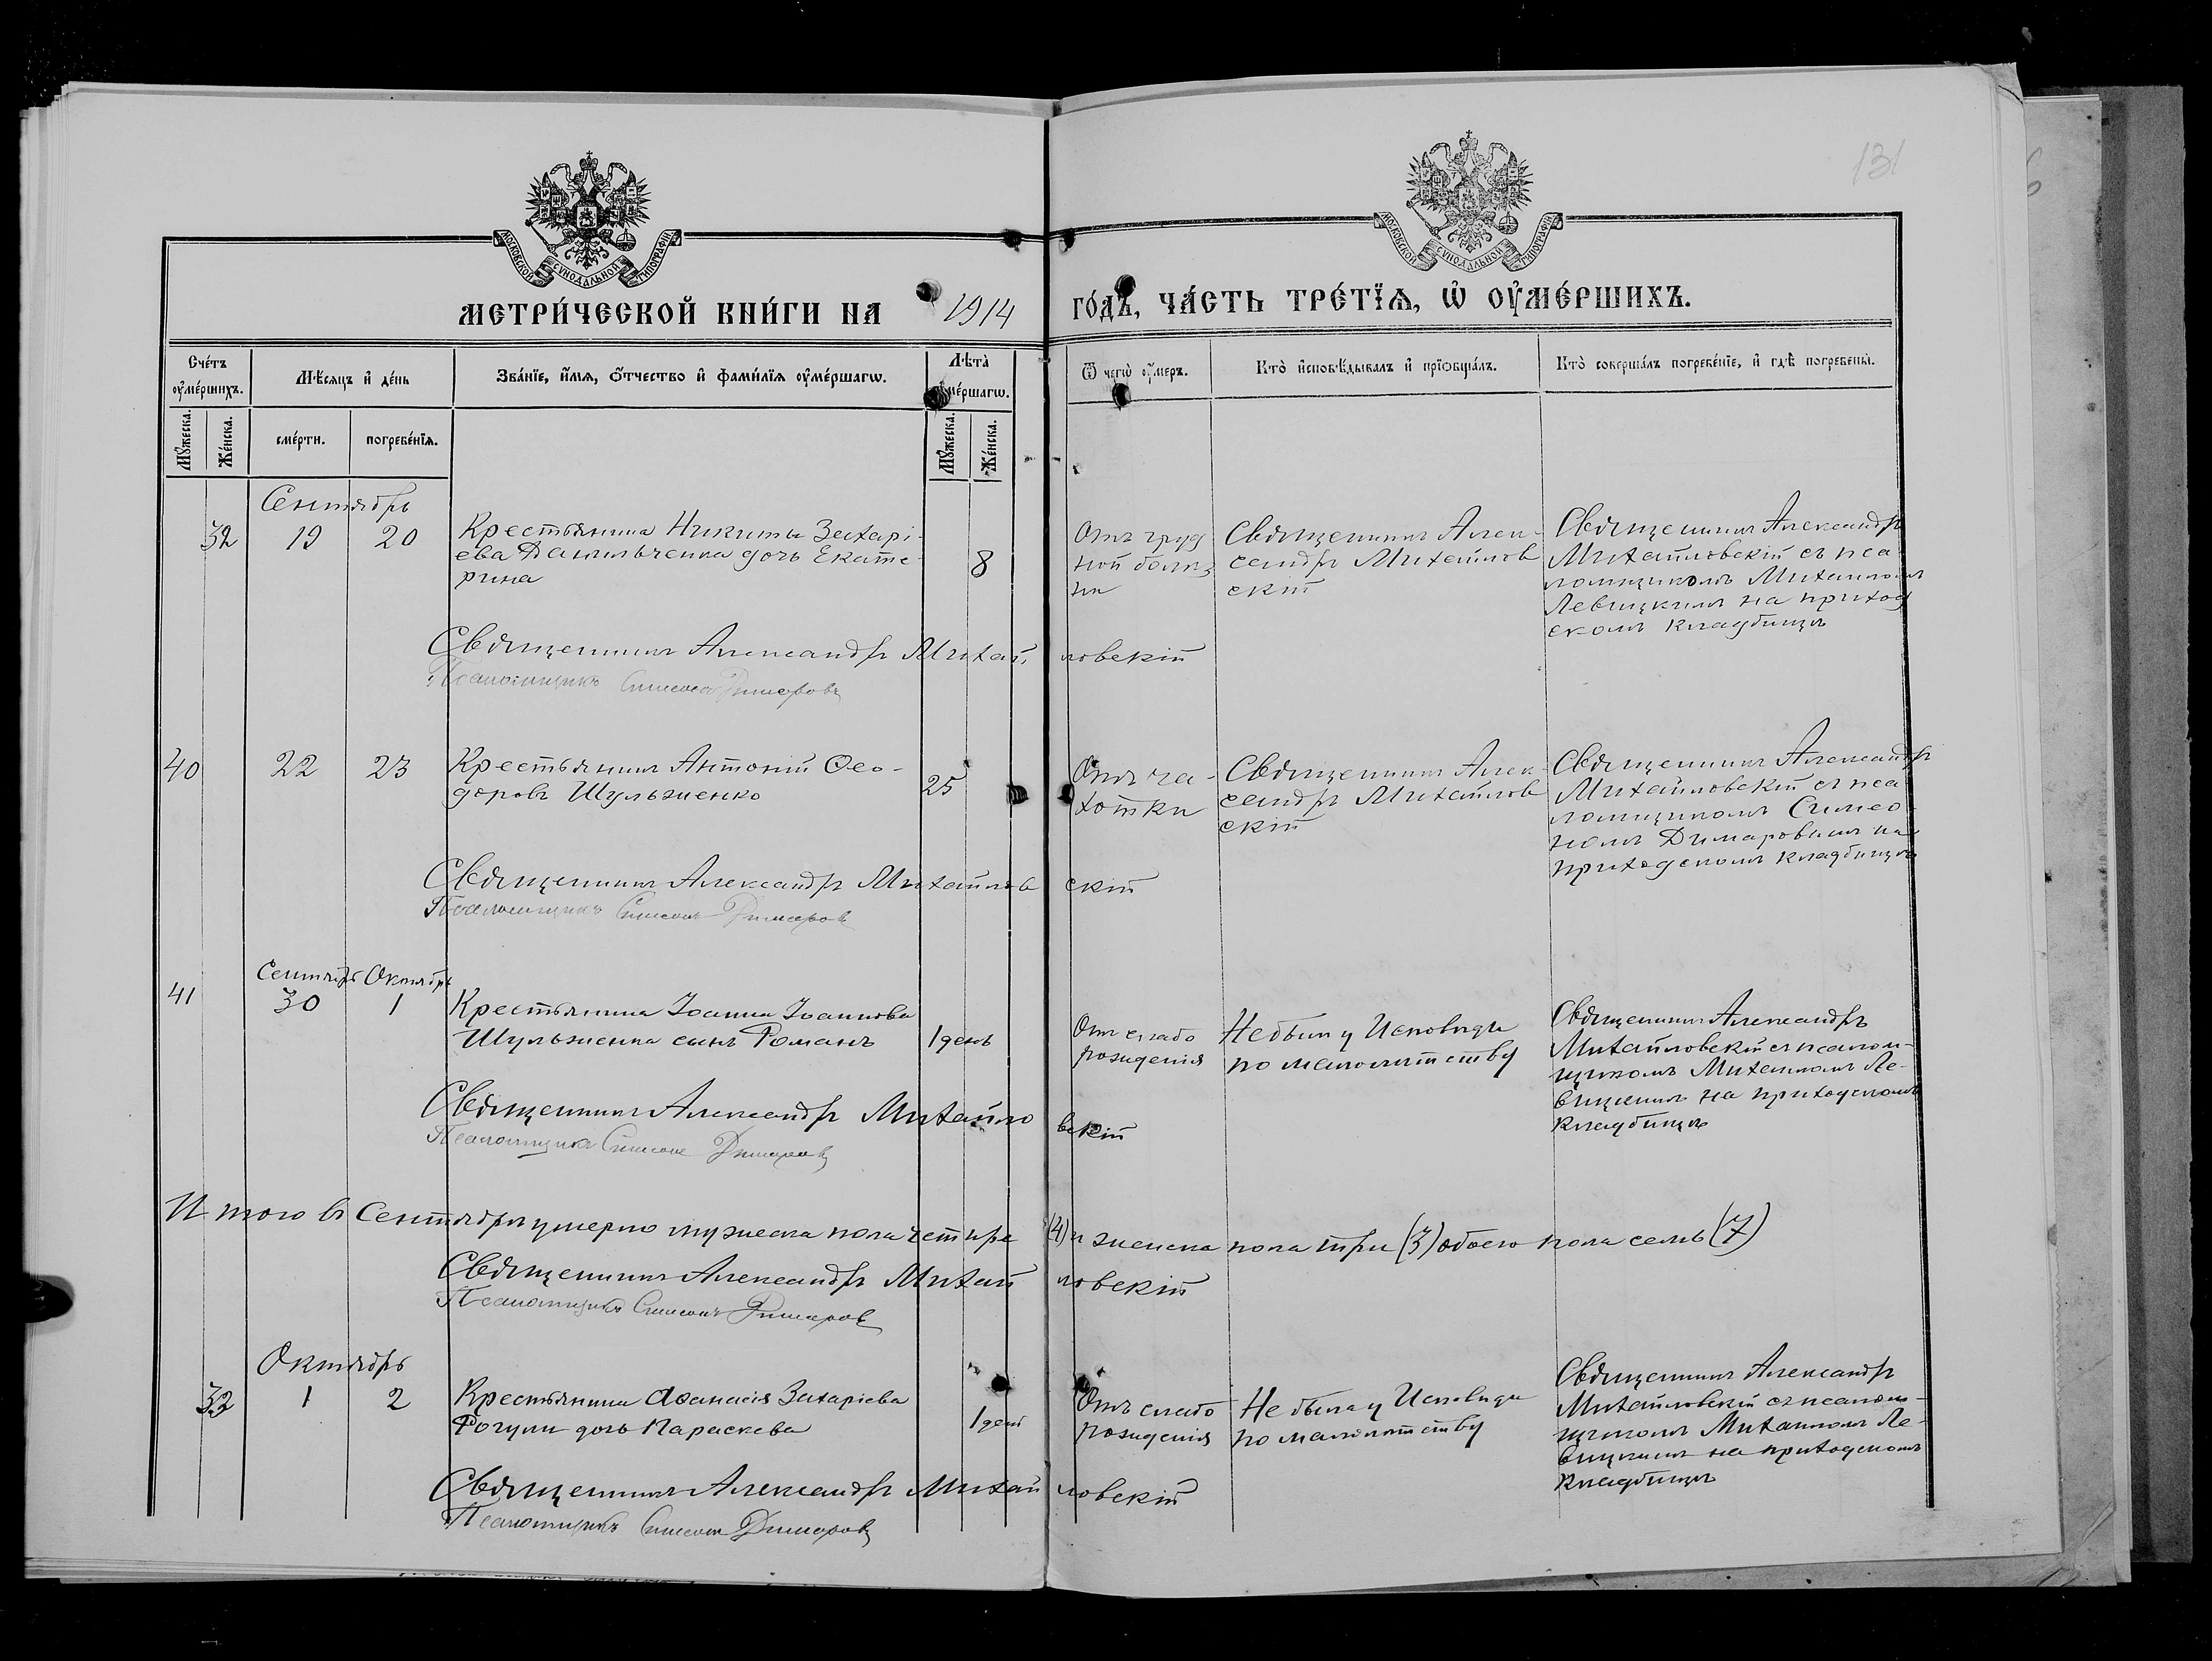 131
МОСКОВСКОЙ СѴНОДАЛЬНОЙ ТИПОГРАФІИ
МОСКОВСКОЙ СѴНОДАЛЬНОЙ ТИПОГРАФІИ
МЕТРИ́ЧЕСКОЙ КНИ́ГИ НА 1914 ГО́ДЪ, ЧА́СТЬ ТРЕ́ТЇѦ, Ѽ ОУ҆МЕ́РШИХЪ.
Сче́тъ оу҆ме́ршихъ.
Мѣ́сяцъ и҆ де́нь
Зва́нїе, и҆́мѧ, ѻ҆́тчество и҆ фами́лїѧ оу҆ме́ршагѡ.
Лѣ́та̀ оу҆ме́ршагѡ.
Ѿ чегѡ̀ оу҆́меръ.
Кто̀ и҆сповѣ́дывалъ и҆ прїѡбща́лъ.
Кто̀ соверша́лъ погребе́нїе, и҆ гдѣ̀ погребены̀.
Мꙋ́жеска.
Же́нска.
сме́рти.
погребе́нїѧ.
Мꙋ́жеска.
Же́нска.
Сентябрь
32 19 20
Крестьянина Никиты Захарі-
ева Данильченка дочь Екате-
рина
8
Отъ груд
ной болѣз
ни
Священникъ Алек-
сандръ Михайлов
скій
Священникъ Александръ
Михайловскій съ пса
ломщикомъ Михаиломъ
Левицкимъ на приход
скомъ кладбищѣ
Священникъ Александръ Михай ловскій
Псаломщикъ Симеонъ Димаровъ
40 22 23
Крестьянинъ Антоній Ѳео-
доровъ Шульженко
25
Отъ ча-
хотки
Священникъ Алек-
сандръ Михайлов
скій
Священникъ Александръ
Михайловскій съ пса
ломщикомъ Симео
номъ Димаровымъ на
приходскомъ кладбищѣ
Священникъ Александръ Михайлов скій
Псаломщикъ Симеонъ Димаровъ
Сентябрь Октябрь
41 30 1
Крестьянина Іоанна Іоаннова
Шульженка сынъ Романъ
1 день
Отъ слабо
рожденія
Не былъ у Исповѣди
по малолѣтству
Священникъ Александръ
Михайловскій съ псалом-
щикомъ Михаиломъ Ле-
вицкимъ на приходскомъ
кладбищѣ
Священникъ Александръ Михайло вскій
Псаломщикъ Симеонъ Димаровъ
Итого въ Сентябрѣ умерло мужеска пола четыре (4) и женска пола три (3) обоего пола семь (7)
Священникъ Александръ Михай ловскій
Псаломщикъ Симеонъ Димаровъ
Октябрь
33 1 2
Крестьянина Аѳанасія Захаріева
Рогули дочь Параскева
1 день
Отъ слабо
рожденія
Не была у Исповѣди
по малолѣтству
Священникъ Александръ
Михайловскій съ псалом-
щикомъ Михаиломъ Ле-
вицкимъ на приходскомъ
кладбищѣ
Священникъ Александръ Михай ловскій
Псаломщикъ Симеонъ Димаровъ